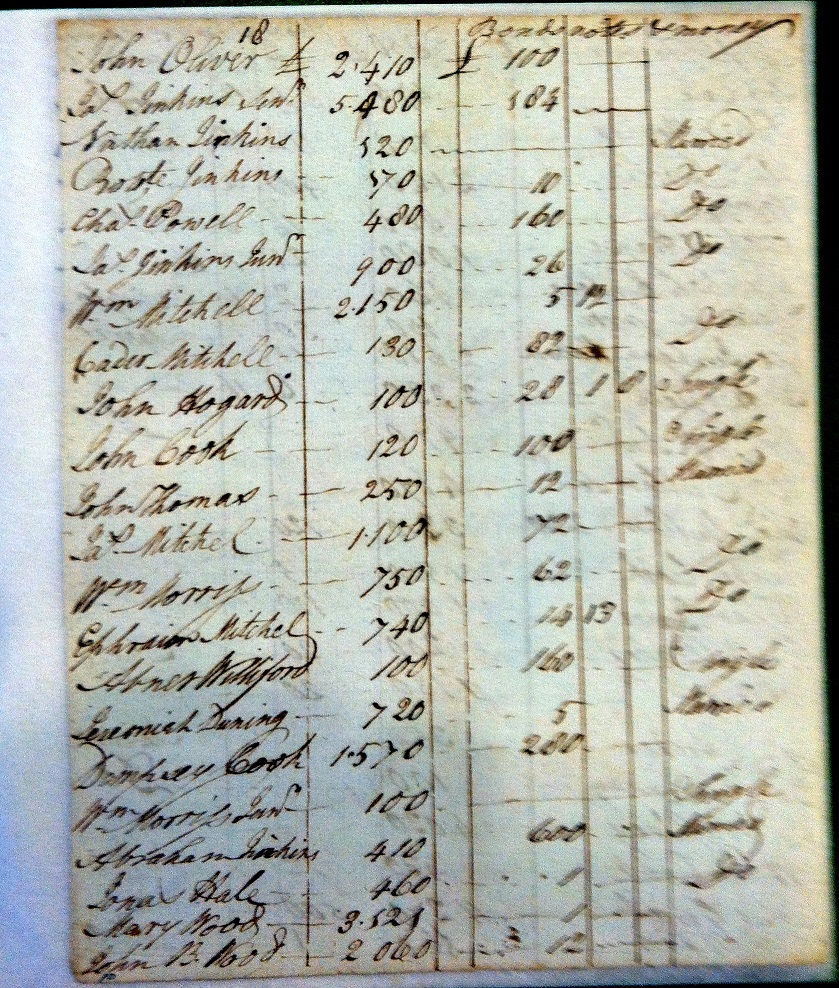 18 Bonds notes & money
John Oliver £ 2.410 £ 100
Jas. Jinkins Senr. 5.480 184
Nathan Jinkins 520 Married
Jinkins 570 10 Do
Chas. Powell 480 160 Do
Jas. Jinkins Junr 900 26 Do
Wm Mitchell 2.150 5 12
Cader Mitchell 130 82 Do
John Hogard 100 28 1 0 Single
John Cook 120 100 Single
John Thomas 250 12 Married
Jas. Mitchel 1.100 72
Wm Morriss 750 62 Do
Ephraim Mitchel 740 14 13 Do
Abner Williford 100 160 Single
Jeremiah Duning 720 5 Married
Dempsey Cook 1.570 280
Wm Morriss Junr 100 Single
Abraham Jinkins 410 600 Married
Jonas Hale 460 1 Do
Mary Wood 3.521 1
John B. Wood 2 060 12